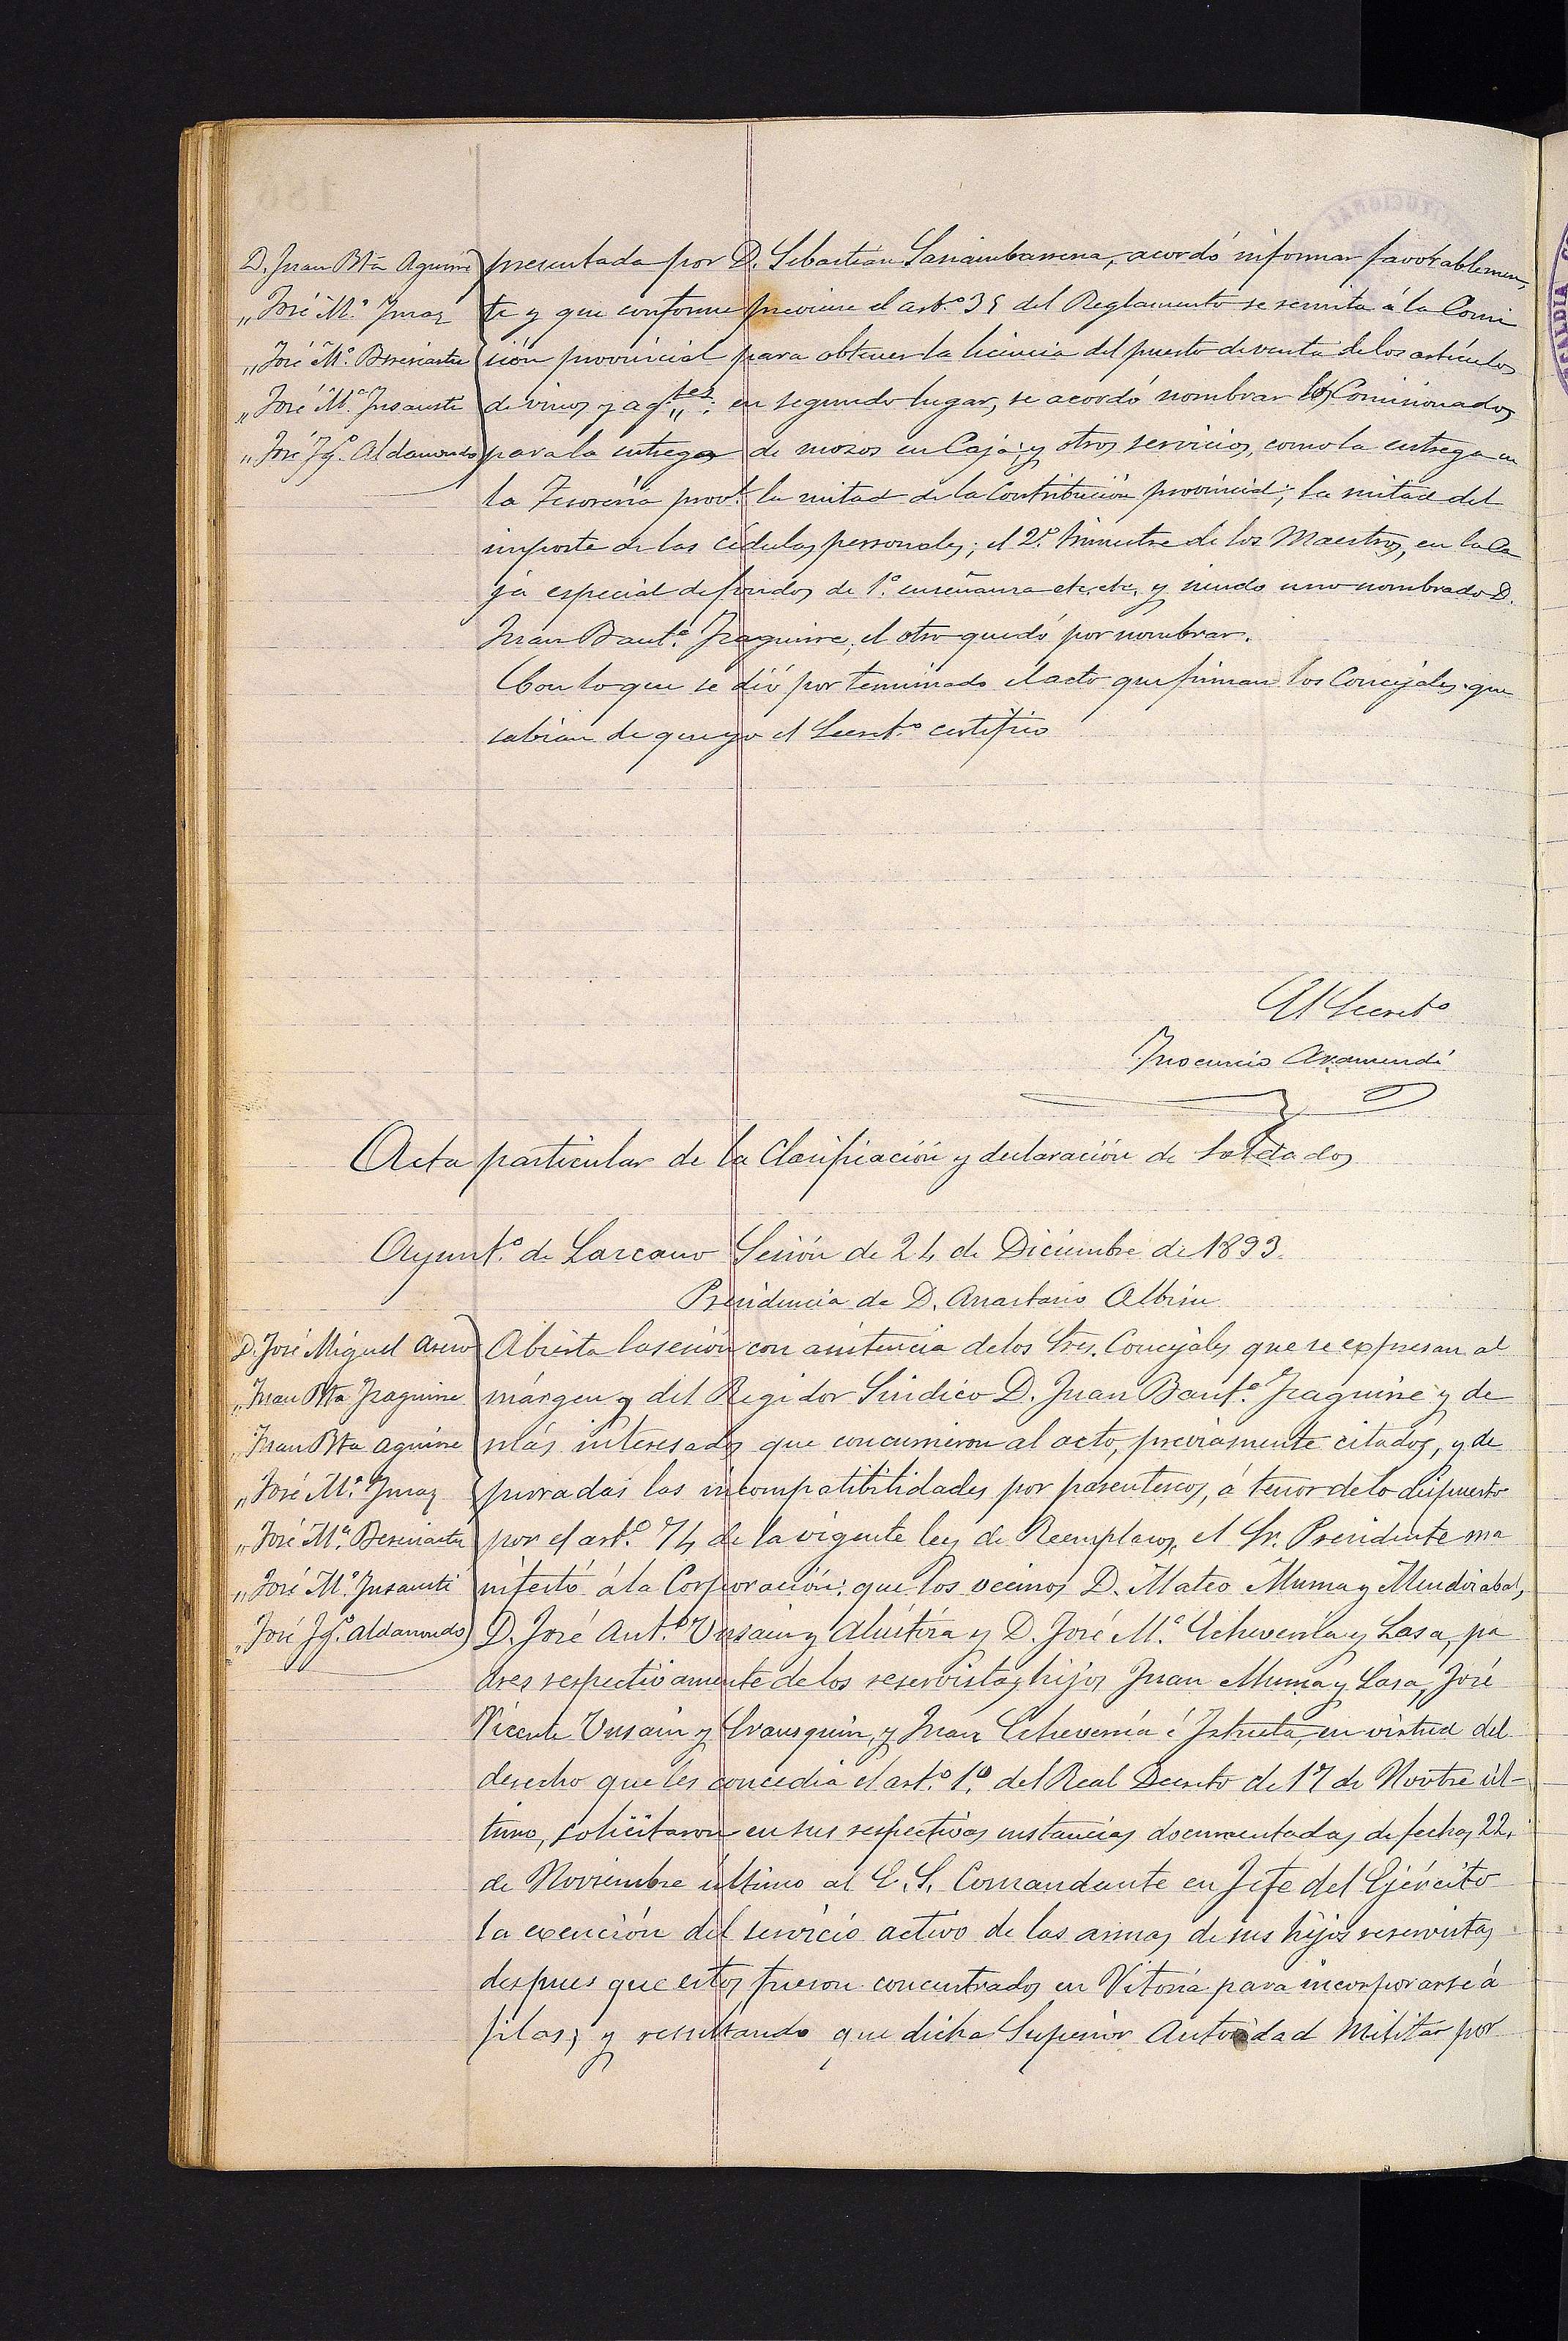 D. Juan Bta Aguirre
„ José M.ª Imaz
„ José M.ª Beresiartu
„ José M.ª Insausti
„ José Ig.º Aldanondo
presentada por D. Sebastián Sarriambarrena, acordó informar favorablemen,
te y que conforme previene el art.º 35 del Reglamento se remita á la Comi
sión provincial para obtener la licencia del puesto de venta de los artículos
de vinos y ag.tes: en segundo lugar, se acordó nombrar los Comisionados
para la entrega de mozos en Caja y otros servicios, como la entrega en
la Tesorería prov.l la mitad de la Contribución provincial; la mitad del
importe de las cédulas personales; el 2.º trimestre de los Maestros, en la Ca
ja especial de fondos de 1.ª enseñanza etc, etc, y siendo uno nombrado D.
Juan Baut.ª Izaguirre, el otro quedó por nombrar.
Con lo que se dió por terminado el acto que firman los Concejales que
sabian de que yo el Secret.º certifico
El Secret.º
Inocencio Aramendi
Acta particular de la Clasificación y declaración de Soldados
Ayunt.º de Lazcano Sesión de 24 de Diciembre de 1893.
Presidencia de D. Anastasio Albisu
D. José Miguel Aseno
„ Juan Bta Izaguirre
„ Juan Bta Aguirre
„ José M.ª Imaz
„ José M.ª Beresiartu
„ José M.ª Insausti
„ José Ig.º Aldanondo
Abierta la sesión con asistencia de los Sres. Concejales que se expresan al
márgen y del Regidor Síndico D. Juan Baut.ª Izaguirre y de
más interesados que concurrieron al acto, previamente citados, y de
puradas las incompatibilidades por parentesco, á tenor de lo dispuesto
por el art.º 74 de la vigente ley de Reemplazos, el Sr. Presidente ma
nifestó á la Corporación: que los vecinos D. Mateo Muma y Mendizabal,
D. José Ant.º Unsain y Aluitira y D. José M.ª Echeverria y Lasa, pa
dres respectivamente de los reservistas hijos Juan Muma y Lasa, José
Vicente Unsain y Uransquin, y Juan Echeverría é Istueta, en virtud del
derecho que les concedia el art.º 1.º del Real Decreto de 17 de Novbre úl-
timo, solicitaron en sus respectivas instancias documentadas de fechas 22,
de Noviembre último al E. S. Comandante en Jefe del Ejército
la exención del servicio activo de las armas de sus hijos reservistas
despues que estos fueron concentrados en Vitoria para incorporarse á
filas; y resultando que dicha Superior Autoridad Militar por